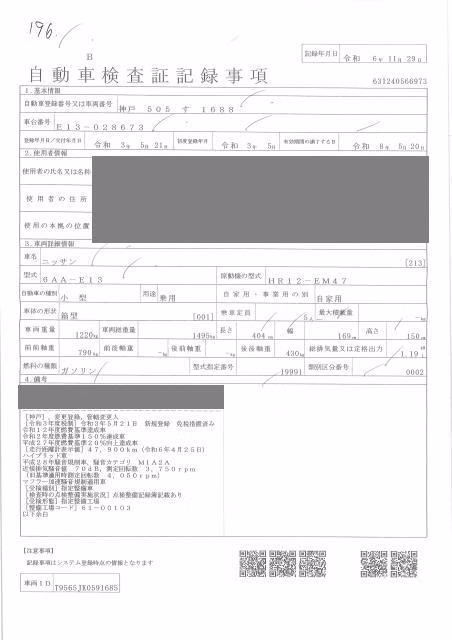 196.
B
記録年月日 令和 6年 11月 29日
自動車検査証記録事項
631240566973
1.基本情報
自動車登録番号又は車両番号 神戸 505 す 1688
車台番号 E13-028673
登録年月日/交付年月日 令和 3年 5月 21日 初度登録年月 令和 3年 5月 有効期間の満了する日 令和 8年 5月 20日
2.使用者情報
使用者の氏名又は名称
使用者の住所
使用の本拠の位置
3.車両詳細情報
車名 ニッサン [213]
型式 6AA-E13 原動機の型式 HR12-EM47
自動車の種別 小型 用途 乗用 自家用・事業用の別 自家用
車体の形状 箱型 [001] 乗車定員 5人 最大積載量 -kg
車両重量 1220kg 車両総重量 1495kg 長さ 404cm 幅 169cm 高さ 150cm
前前軸重 790kg 前後軸重 -kg 後前軸重 -kg 後後軸重 430kg 総排気量又は定格出力 1.19
燃料の種類 ガソリン 型式指定番号 19991 類別区分番号 0002
4.備考
[神戸],変更登録,管轄変更入
[令和3年度税制]令和3年5月21日 新規登録 免税措置済み
令和12年度燃費基準達成車
令和2年度燃費基準150%達成車
平成27年度燃費基準20%向上達成車
[走行距離計表示値]47,900km(令和6年4月25日)
ハイブリッド車
平成28年騒音規制車,騒音カテゴリ M1A2A
近接排気騒音値 70dB,測定回転数 3,750rpm
(旧基準適用時測定回転数 4,050rpm)
マフラー加速騒音規制適用車
[受検種別]指定整備車
[検査時の点検整備実施状況]点検整備記録簿記載あり
[受検形態]指定整備工場
[整備工場コード]61-00103
以下余白
[注意事項]
記録事項はシステム登録時点の情報となります
車両ID T9565JK0591685